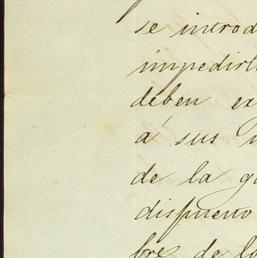 se introd
impedirl
deben ex
á sus
de la ga
dispuesto
bre de lo